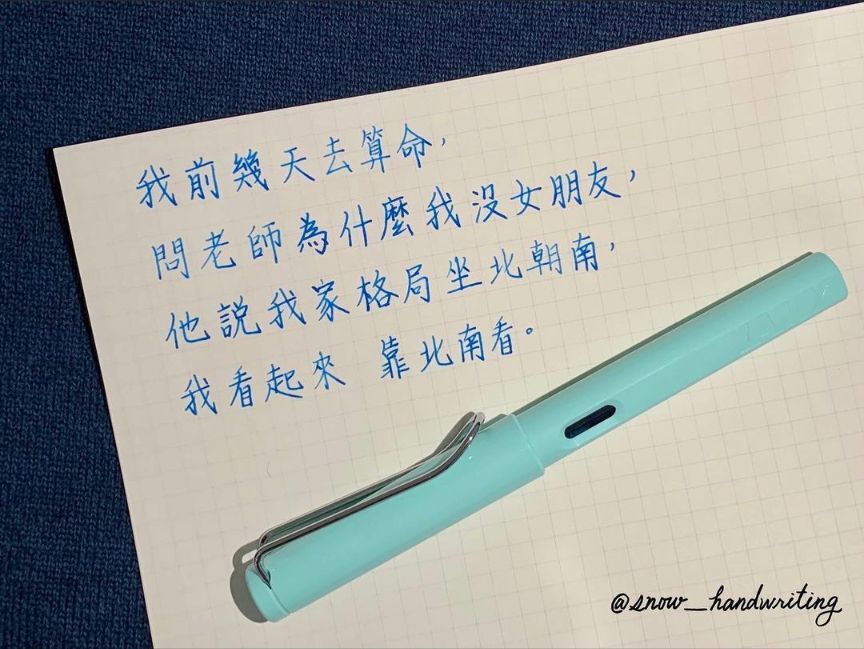 我前幾天去算命，
問老師為什麼我沒女朋友，
他說我家格局坐北朝南，
我看起來 靠北南看。
LAMY
@snow__handwriting